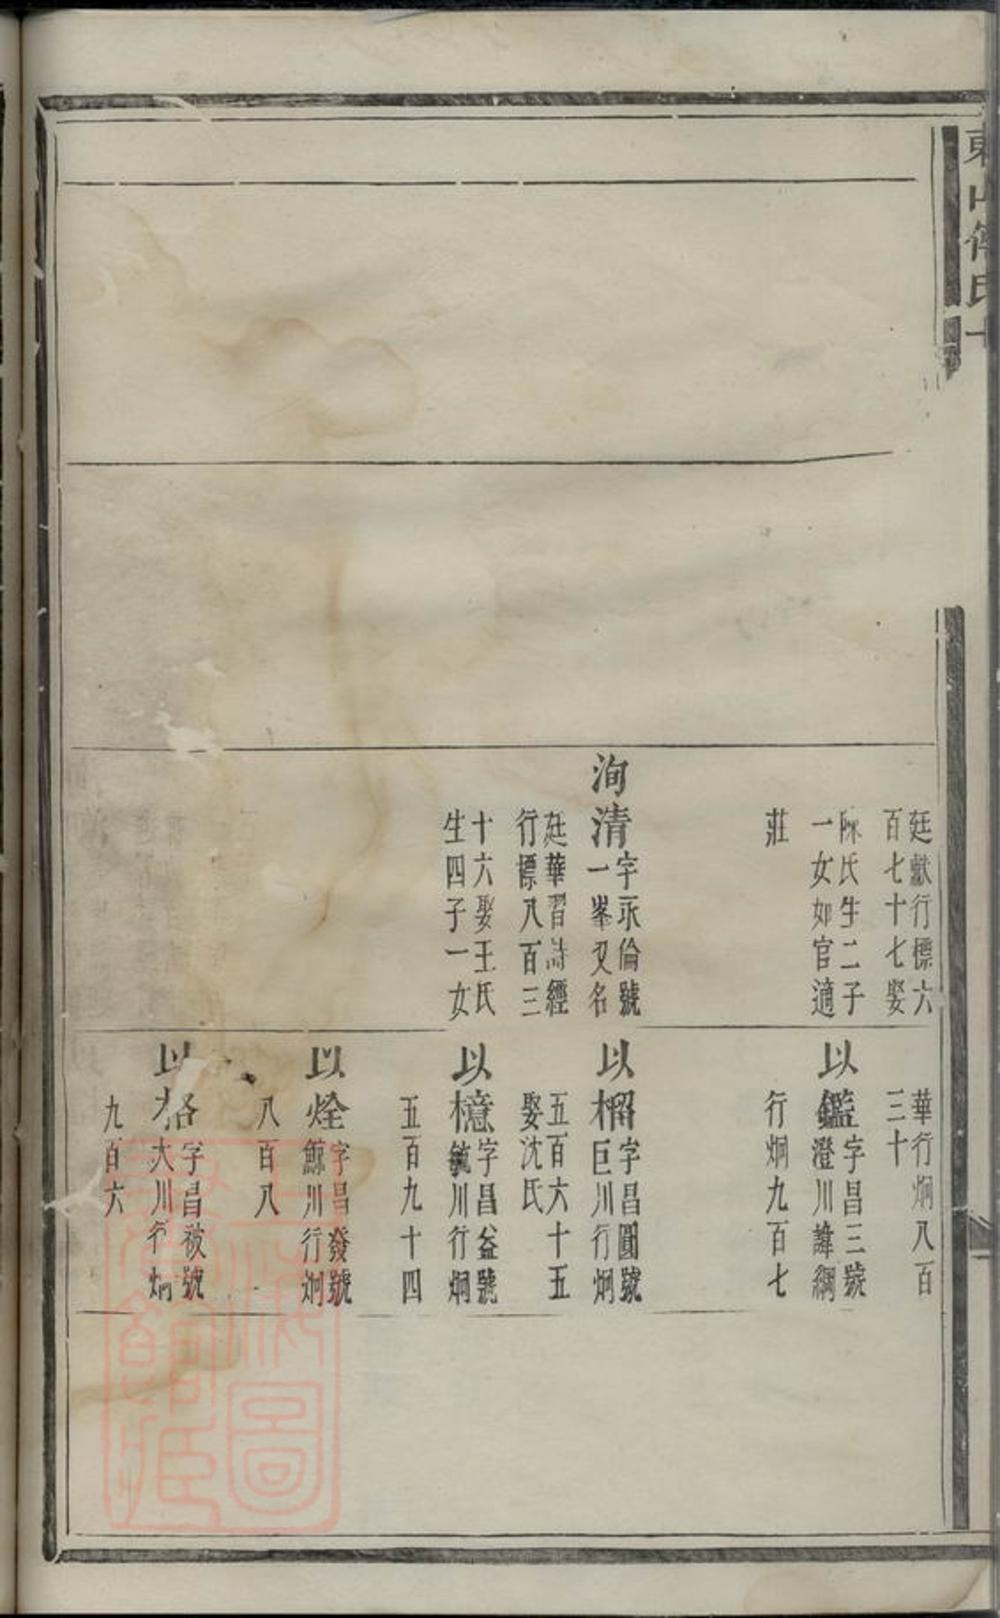 廷獻行標六
百七十七娶
陳氏生二子
一女如官適
莊
洵清
字永倫號
一峯又名
廷華習詩經
行標八百三
十六娶王氏
生四子一女
華行炯八百
三十
以鑑
字昌三號
澄川諱綱
行炯九百七
以榴
字昌圓號
巨川行炯
五百六十五
娶沈氏
以檍
字昌益號
毓川行炯
五百九十四
以烇
字昌發號
鯨川行炯
八百八
以格
字昌被號
大川行炯
九百六